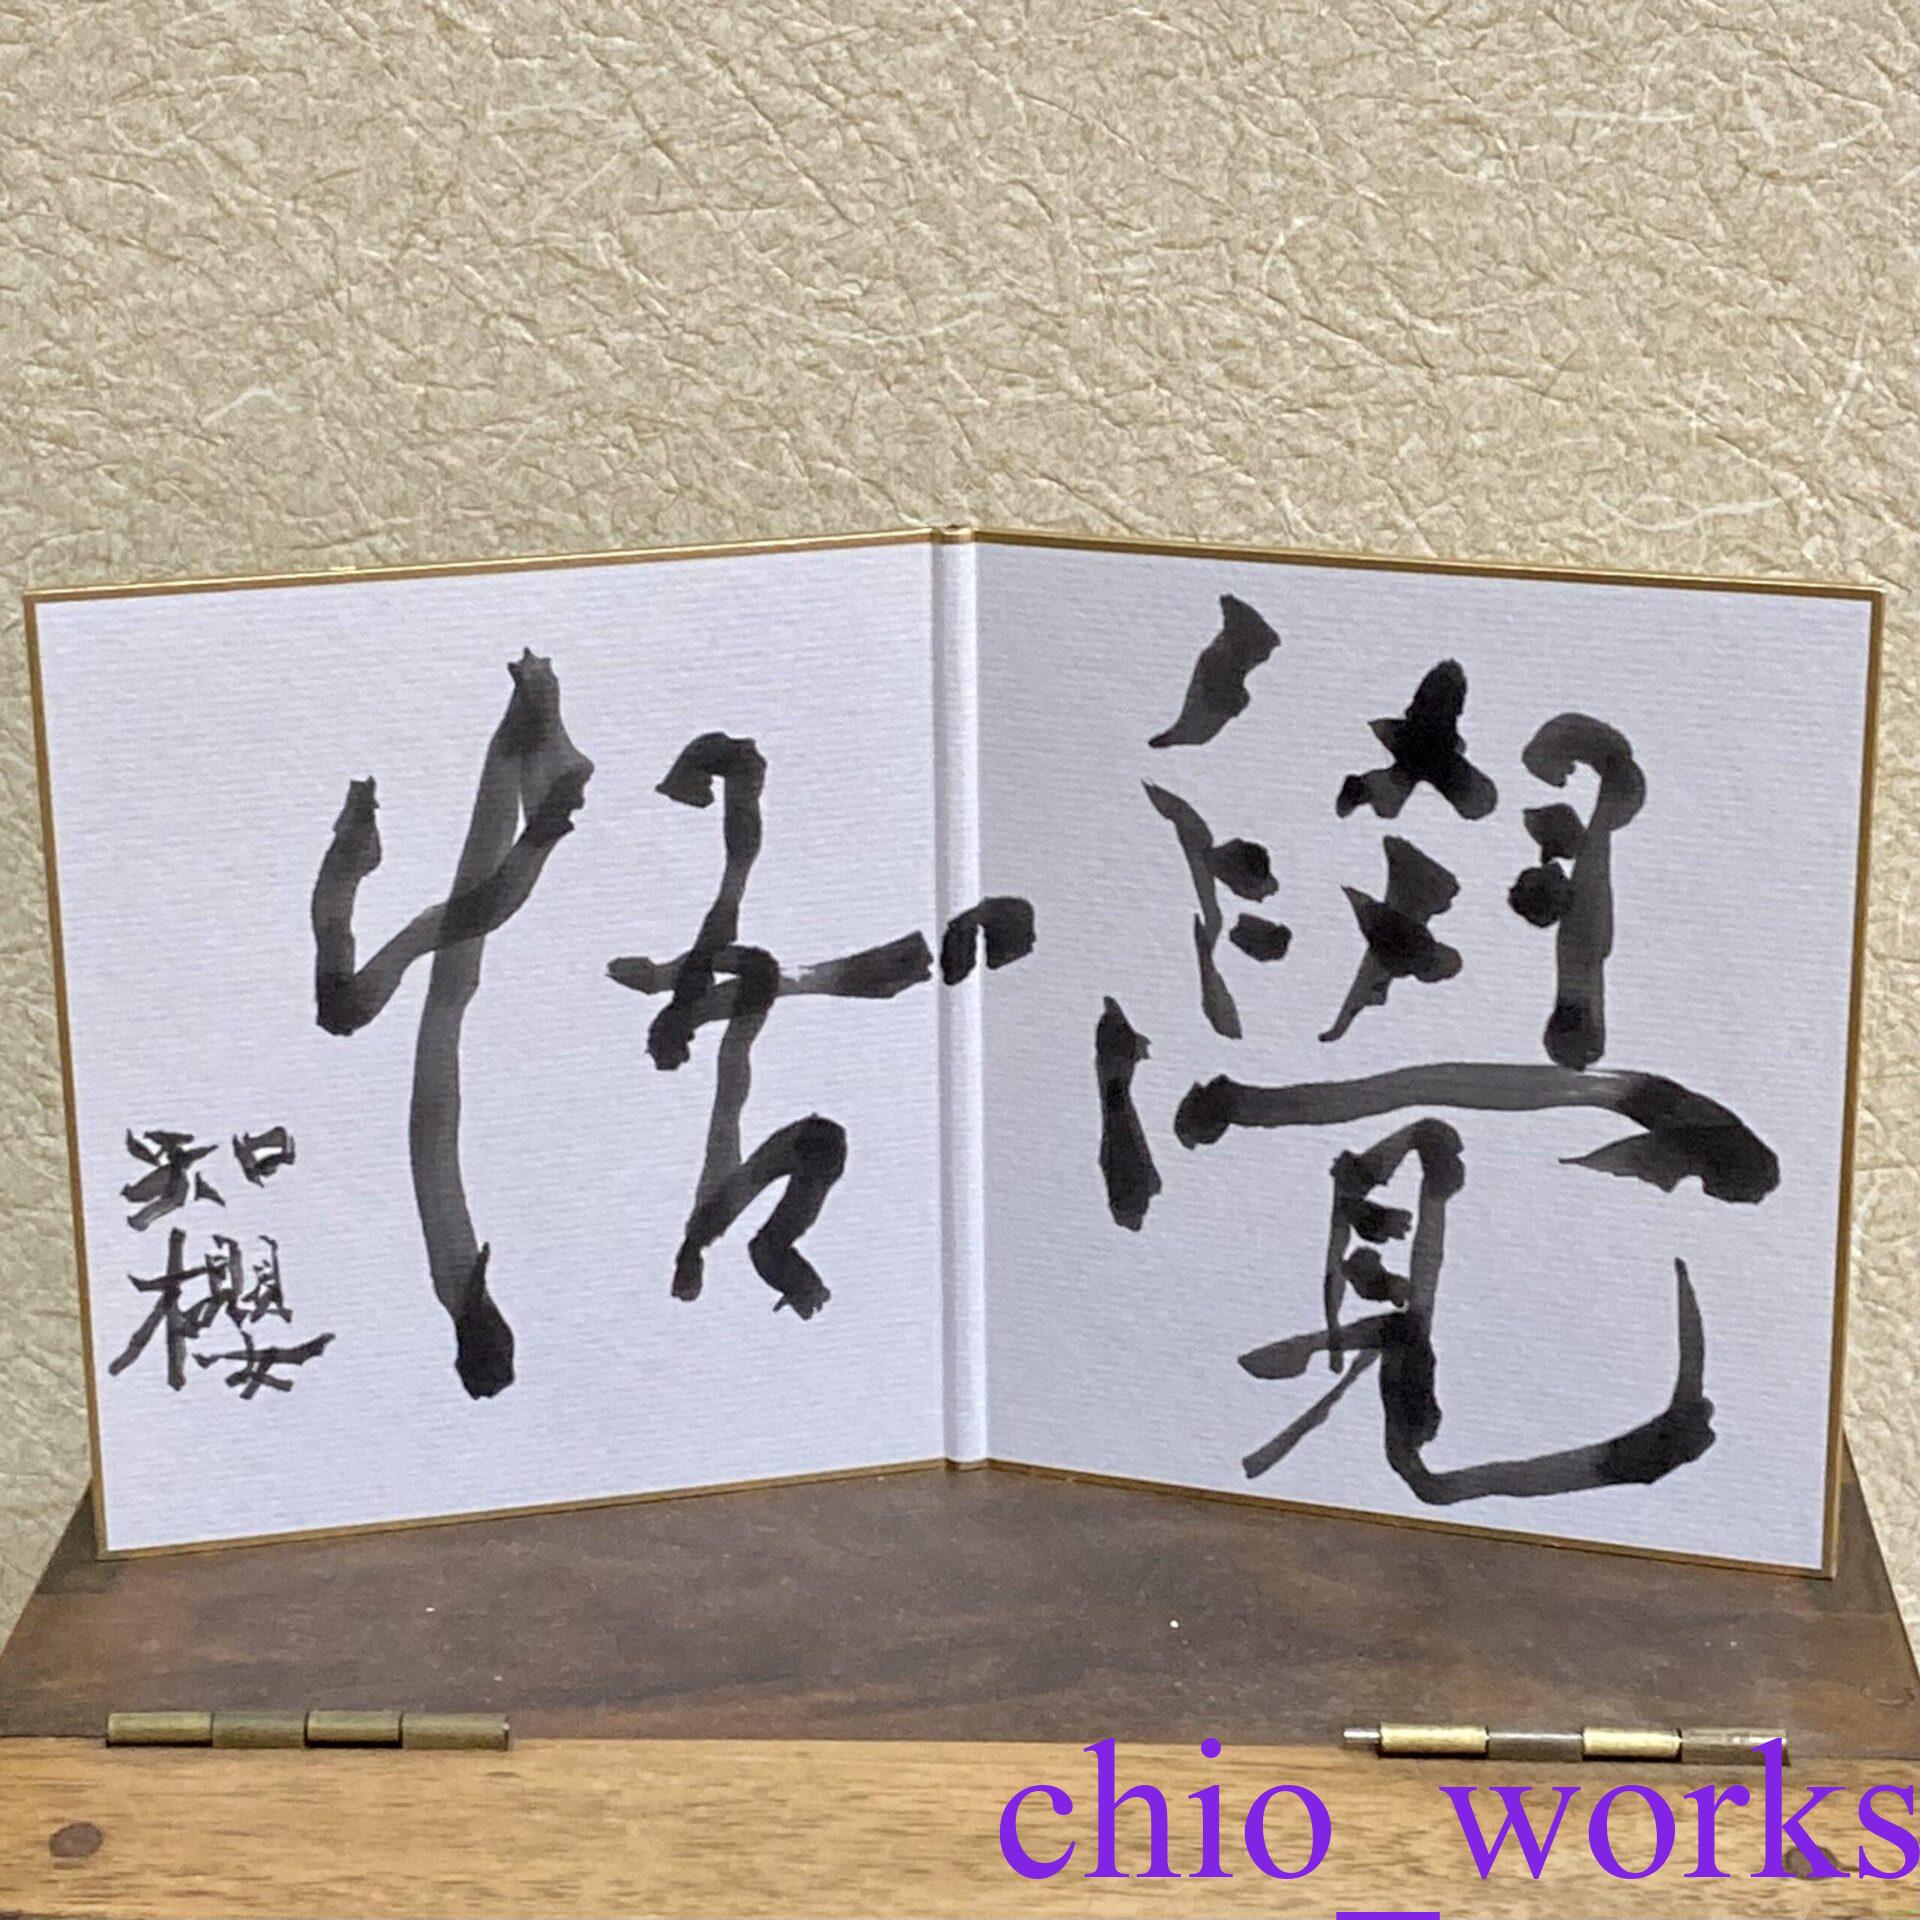 覺悟
知櫻
chio_works